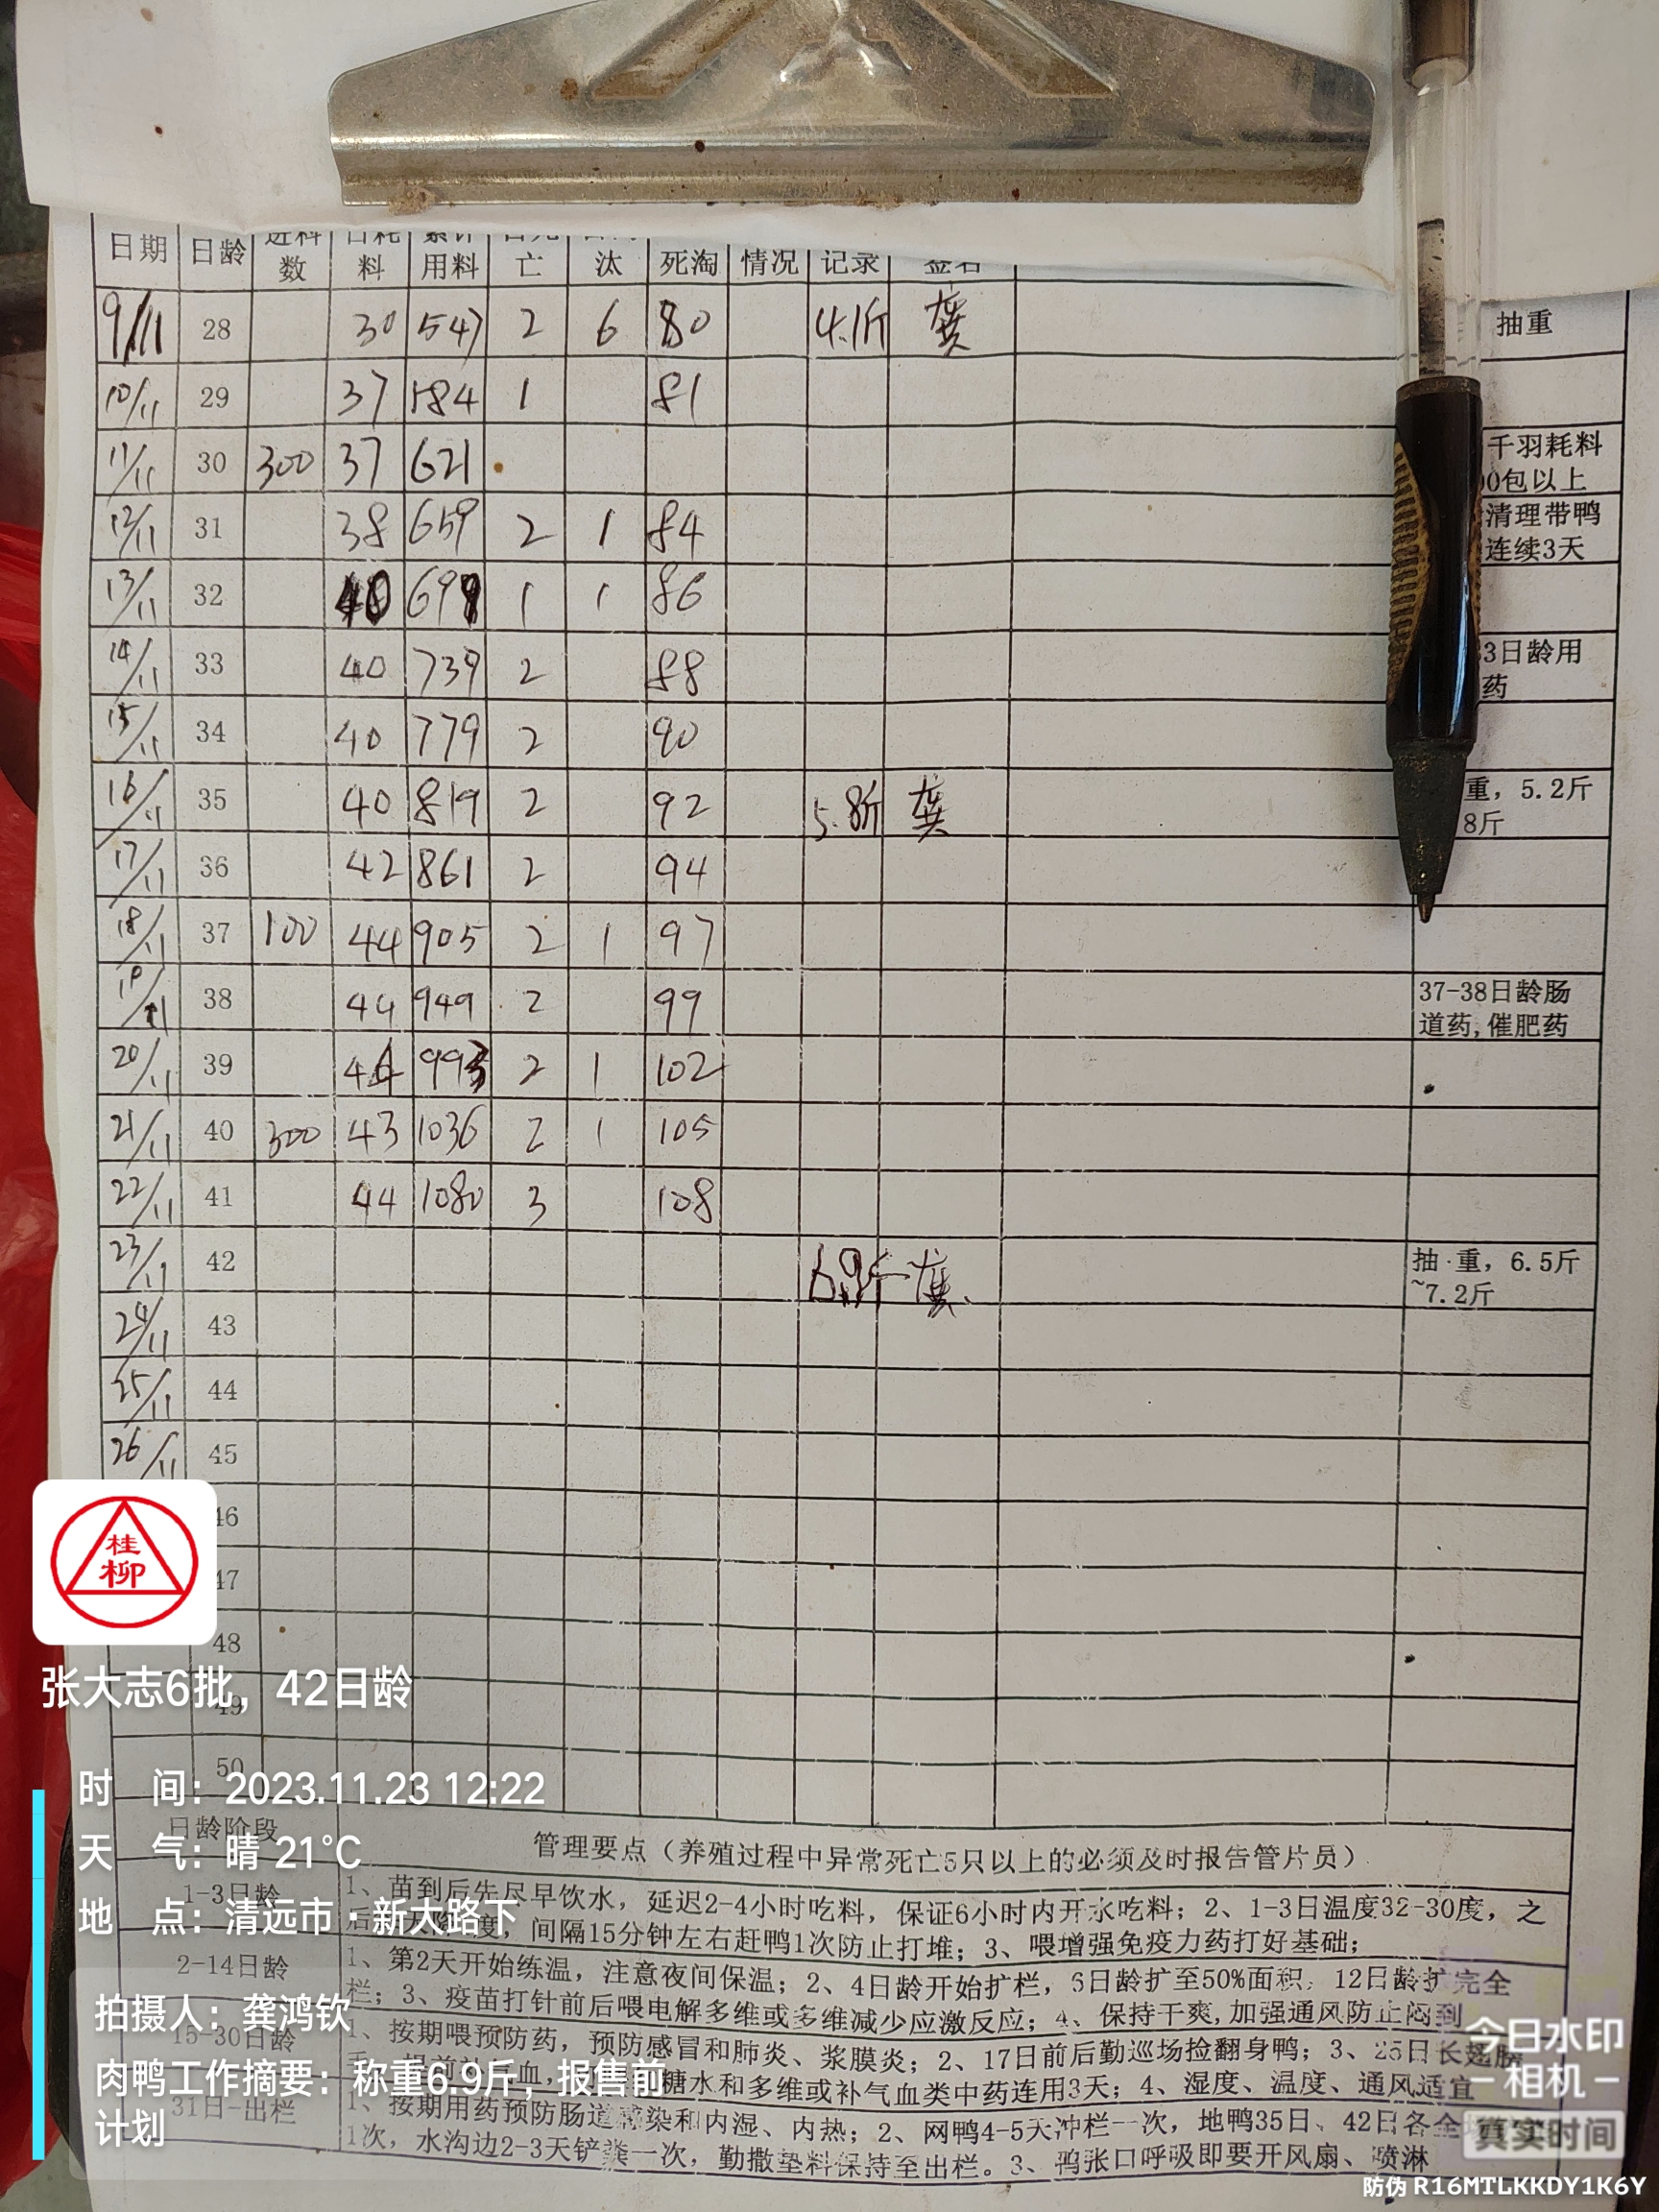 日期 日龄 数 料 用料 亡 汰 死淘 情况 记录
9/11 28 30 547 2 6 80 4.1斤 龚 抽重
10/11 29 37 584 1 81
11/11 30 300 37 621 千羽耗料
0包以上
12/11 31 38 659 2 1 84 清理带鸭
连续3天
13/11 32 40 699 1 1 86
14/11 33 40 739 2 88 33日龄用
药
15/11 34 40 779 2 90
16/11 35 40 819 2 92 5.8斤 龚 重，5.2斤
8斤
17/11 36 42 861 2 94
18/11 37 100 44 905 2 1 97
19/11 38 44 949 2 99 37-38日龄肠
道药,催肥药
20/11 39 44 993 2 1 102
21/11 40 300 43 1036 2 1 105
22/11 41 44 1080 3 108
23/11 42 6.9斤 龚 抽重，6.5斤
~7.2斤
24/11 43
25/11 44
26/11 45
46
47
48
49
50
桂
柳
张大志6批，42日龄
时 间：2023.11.23 12:22
天 气：晴 21℃
地 点：清远市·新大路下
拍摄人：龚鸿钦
肉鸭工作摘要：称重6.9斤，报售前
计划
日龄阶段 管理要点（养殖过程中异常死亡5只以上的必须及时报告管片员）
1-3日龄 1、苗到后先尽早饮水，延迟2-4小时吃料，保证6小时内开水吃料；2、1-3日温度32-30度，之
度，间隔15分钟左右赶鸭1次防止打堆；3、喂增强免疫力药打好基础；
2-14日龄 1、第2天开始练温，注意夜间保温；2、4日龄开始扩栏，6日龄扩至50%面积，12日龄扩完全
栏；3、疫苗打针前后喂电解多维或多维减少应激反应；4、保持干爽,加强通风防止闷到
15-30日龄 1、按期喂预防药，预防感冒和肺炎、浆膜炎；2、17日前后勤巡场捡翻身鸭；3、25日长翅膀
血，糖水和多维或补气血类中药连用3天；4、湿度、温度、通风适宜
31日-出栏 1、按期用药预防肠道感染和内湿、内热；2、网鸭4-5天冲栏一次，地鸭35日、42日各全
1次，水沟边2-3天铲粪一次，勤撒垫料保持至出栏。3、鸭张口呼吸即要开风扇、喷淋
今日水印
相机
真实时间
防伪 R16MTLKKDY1K6Y